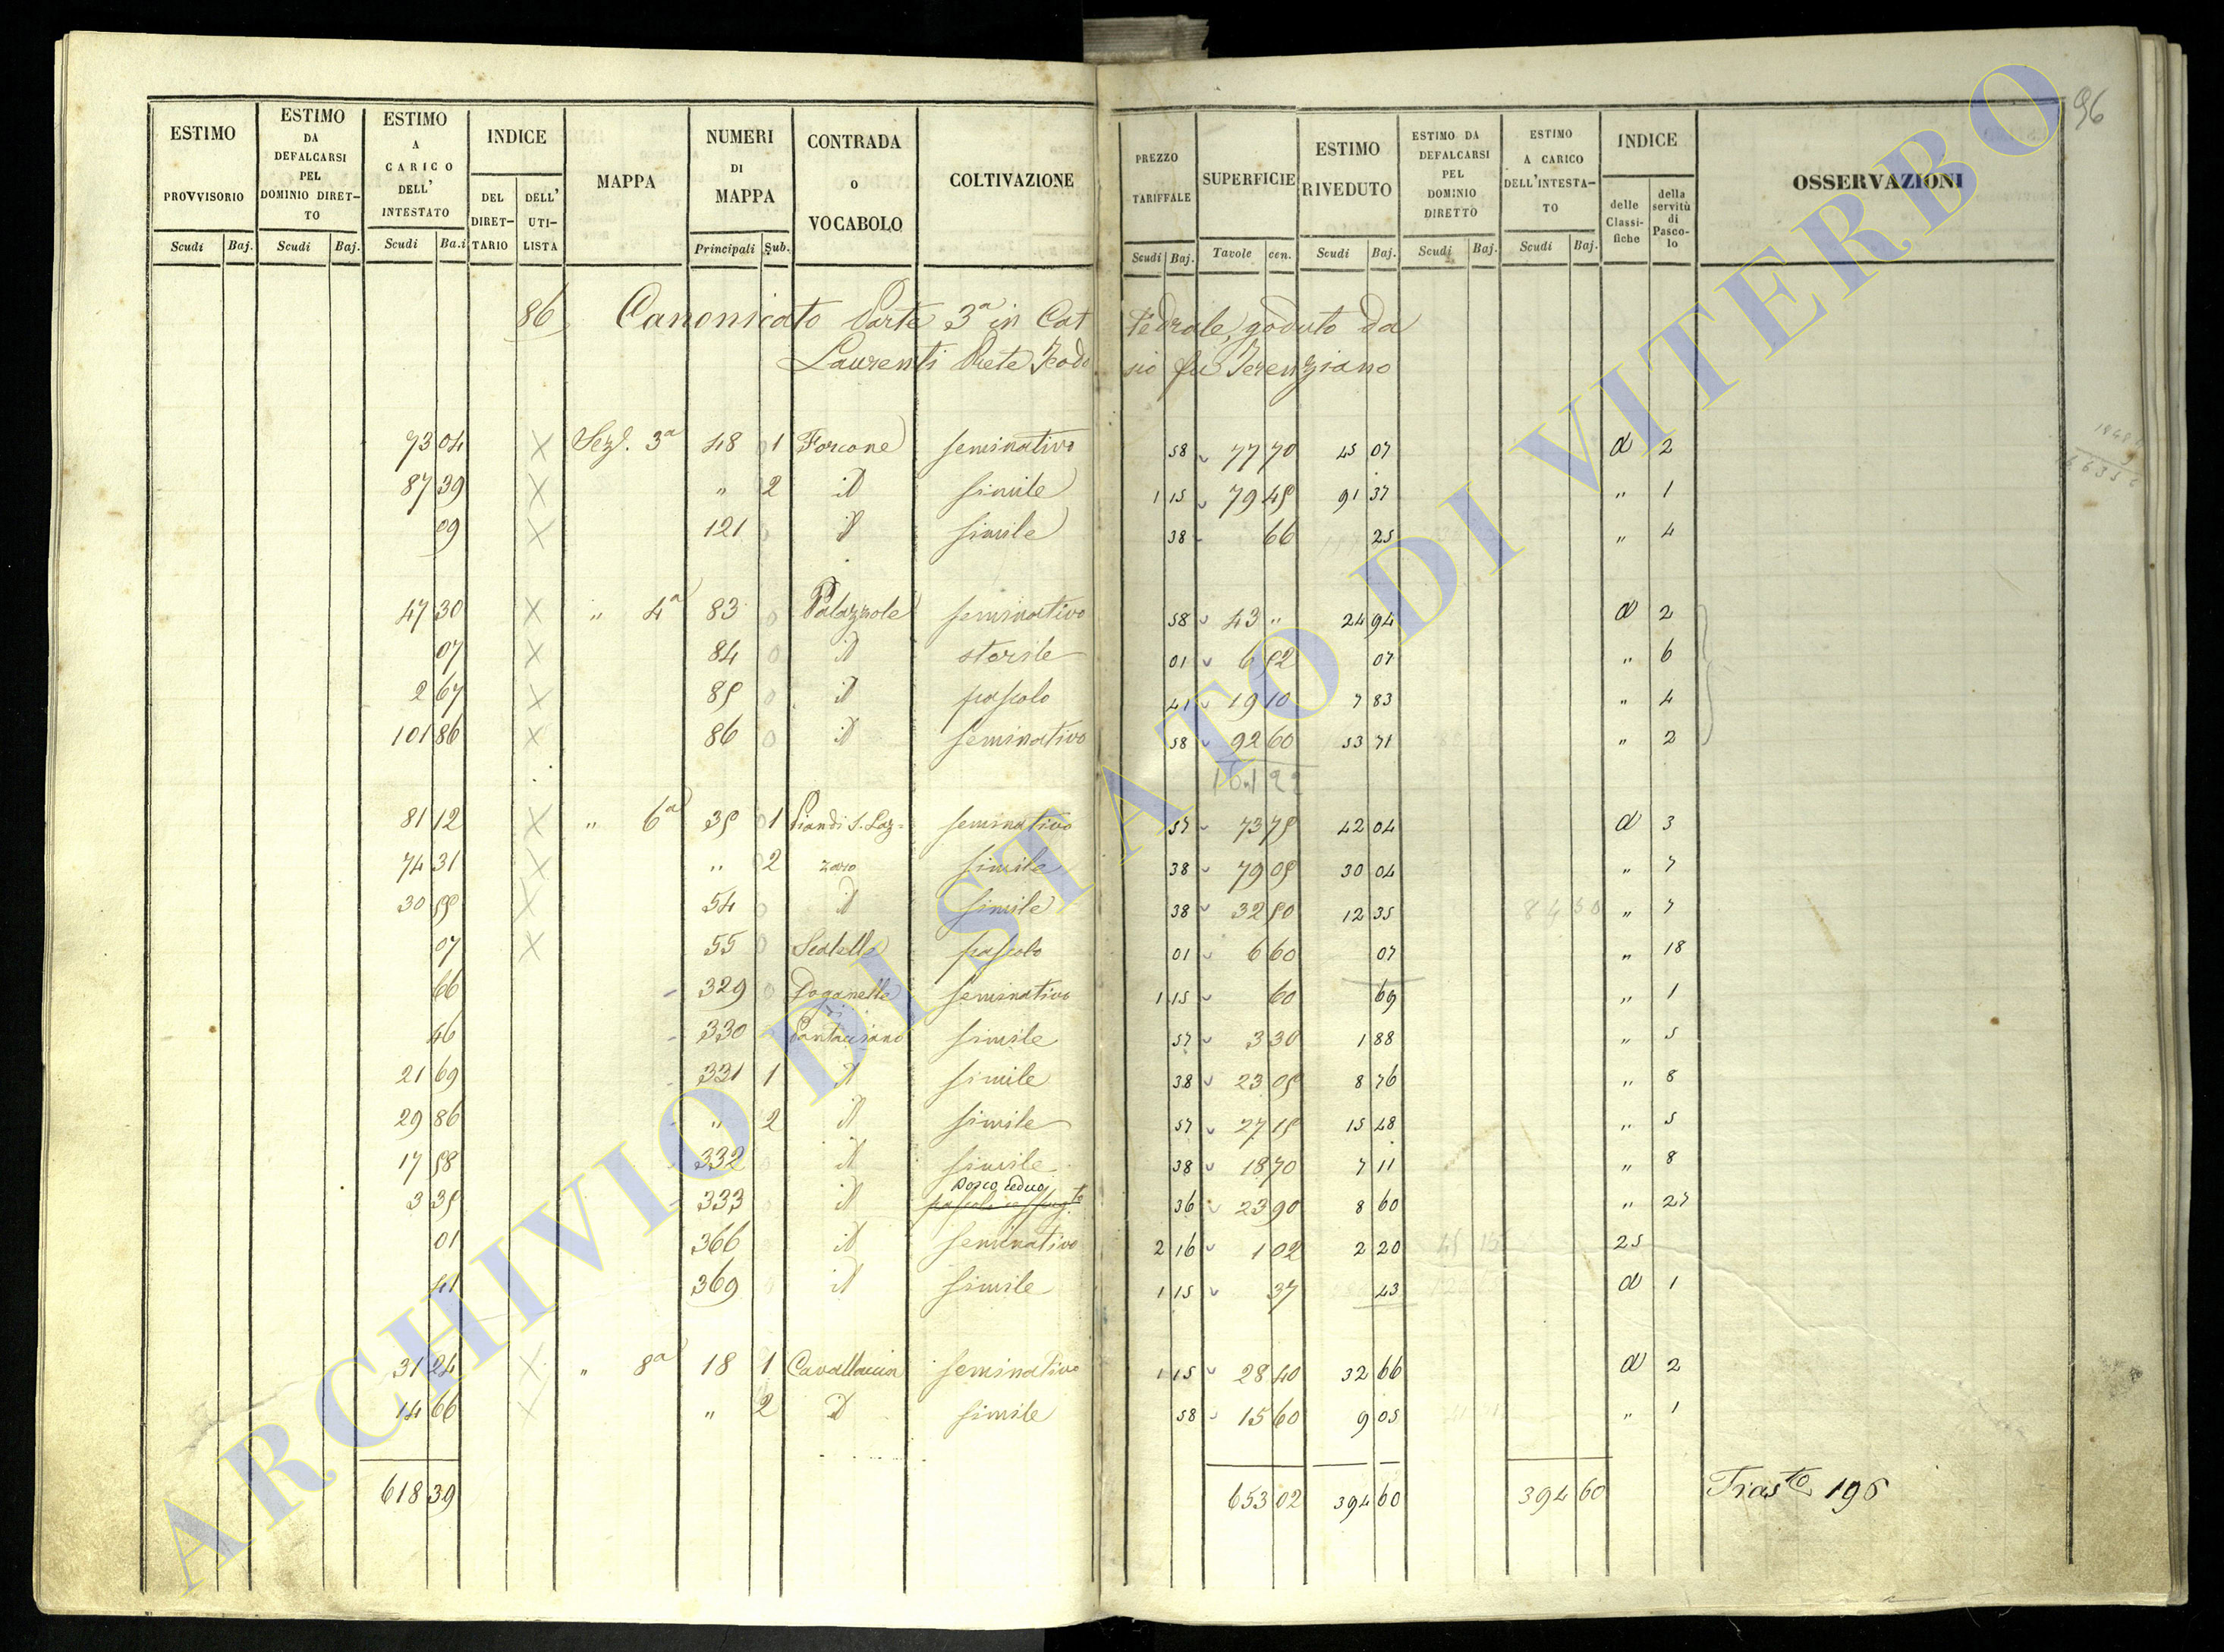 96
ESTIMO PROVVISORIO Scudi Baj.
ESTIMO DA DEFALCARSI PEL DOMINIO DIRET-TO Scudi Baj.
ESTIMO A CARICO DELL' INTESTATO Scudi Ba.i
INDICE DEL DIRET-TARIO DELL' UTI-LISTA
MAPPA
NUMERI DI MAPPA Principali Sub.
CONTRADA O VOCABOLO
COLTIVAZIONE
PREZZO TARIFFALE Scudi Baj.
SUPERFICIE Tavole cen.
ESTIMO RIVEDUTO Scudi Baj.
ESTIMO DA DEFALCARSI PEL DOMINIO DIRETTO Scudi Baj.
ESTIMO A CARICO DELL'INTESTA-TO Scudi Baj.
INDICE delle Classi-fiche della servitù di Pasco-lo
OSSERVAZIONI
86 Canonicato Parte 3a in Cat tedrale, goduto da
Laurenti Prete Teodo sio fu Terenziano
73 04 X Sez. 3a 48 0 1 Forcone seminativo 58 77 70 45 07 d 2
87 39 X " 2 id simile 1 15 79 45 91 37 " 1
09 X 121 0 id simile 38 66 25 " 4
47 30 X " 4a 83 0 Palazzole seminativo 58 43 " 24 94 d 2
07 X 84 0 id sterile 01 6 52 07 " 6
2 67 X 85 0 id pascolo 41 19 10 7 83 " 4
101 86 X 86 0 id seminativo 58 92 60 53 71 " 2
81 12 X " 6a 35 0 1 Pian di S. Laz= seminativo 57 73 75 42 04 d 3
74 31 X " 0 2 zaro simile 38 79 05 30 04 " 7
30 55 X 54 0 id simile 38 32 50 12 35 84 50 " 7
07 X 55 0 Scatelle pascolo 01 6 60 07 " 18
66 - 329 0 Doganelle seminativo 1 15 60 69 " 1
46 - 330 di Pantaciano simile 57 3 30 1 88 " 5
21 69 - 331 1 id simile 38 23 05 8 76 " 8
29 86 - " 2 id simile 57 27 15 15 48 " 5
17 58 - 332 id simile 38 18 70 7 11 " 8
Bosco ceduo
3 35 - 333 id 36 23 90 8 60 " 27
01 366 id seminativo 2 16 1 02 2 20 25
41 369 id simile 1 15 37 43 d 1
31 24 X " 8a 18 1 Cavallaccia seminativo 1 15 28 40 32 66 d 2
14 66 X " 2 id simile 58 15 60 9 05 " 1
618 39 653 02 394 60 394 60 Trasto 195
ARCHIVIO DI STATO DI VITERBO